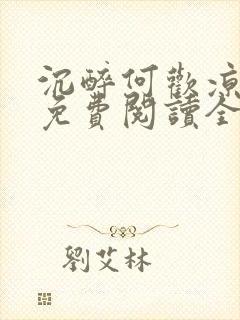 沉醉何歡涼
免費閱讀全
劉艾林